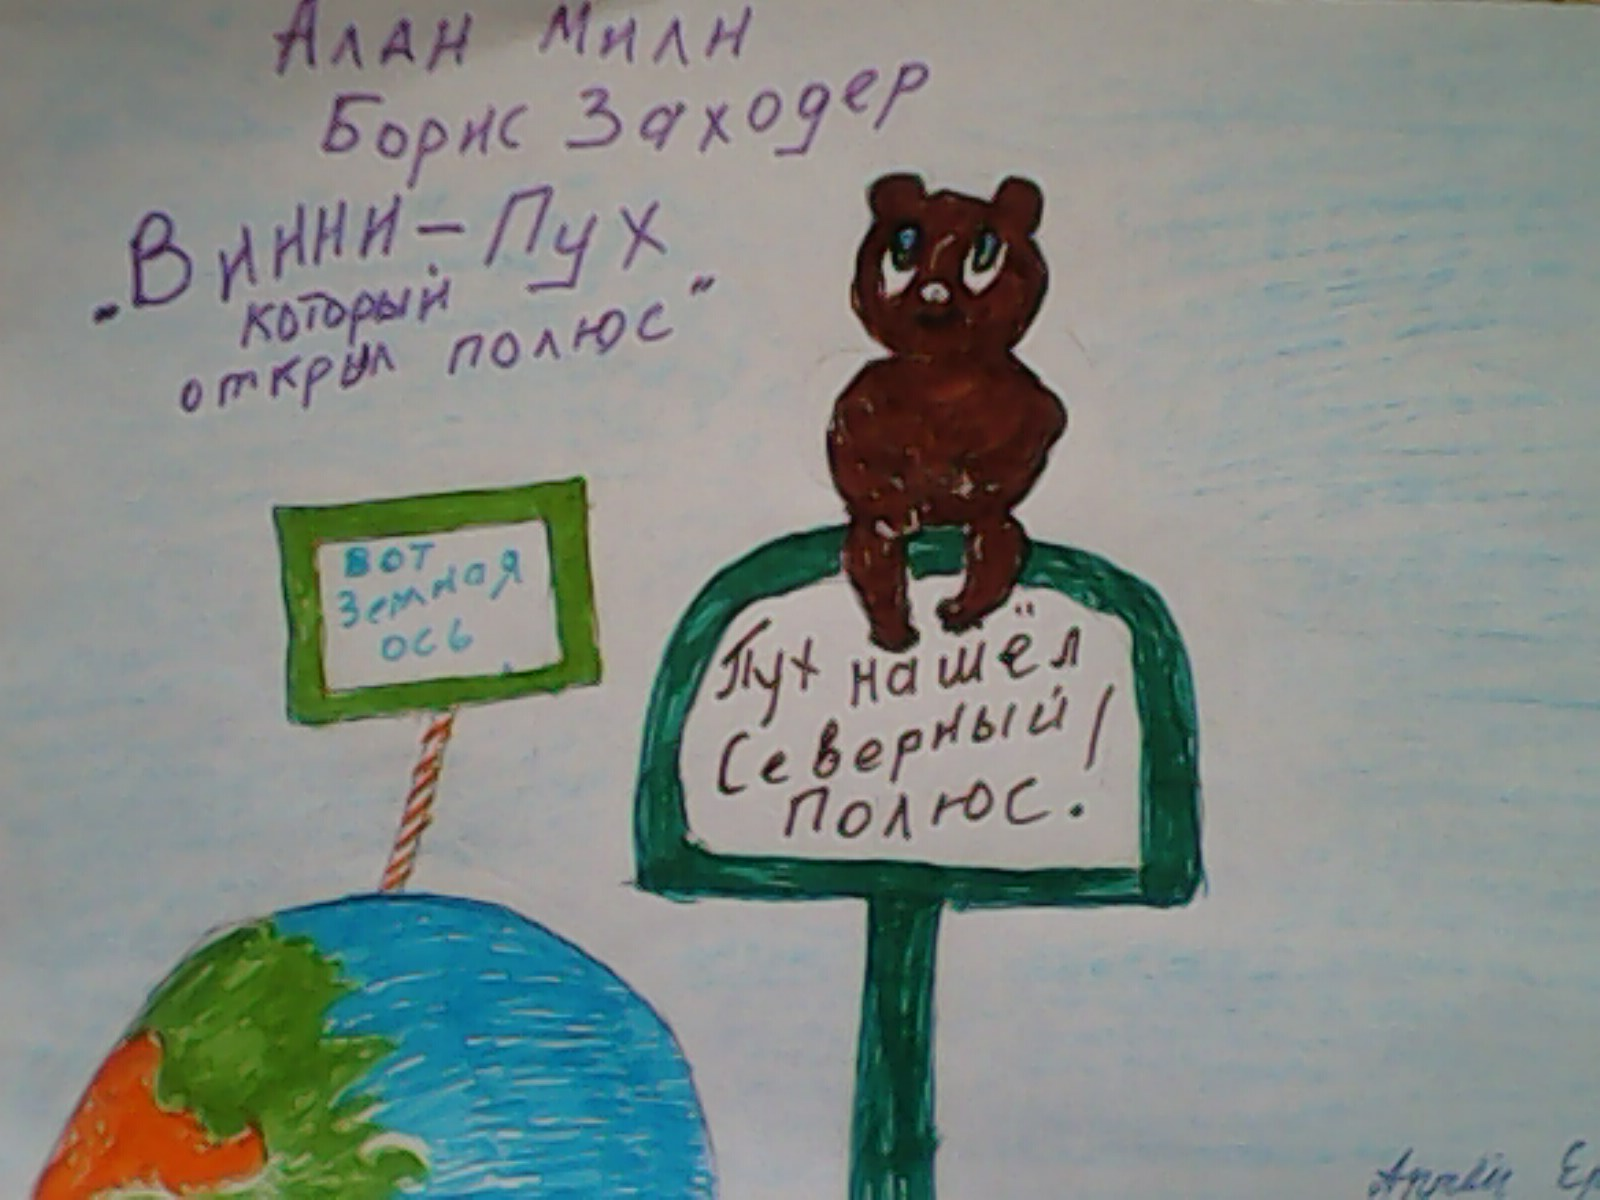 Алан Милн
Борис Заходер
„Винни-Пух
который
открыл полюс"
вот
земная
ось
Пух нашёл
Северный!
полюс.